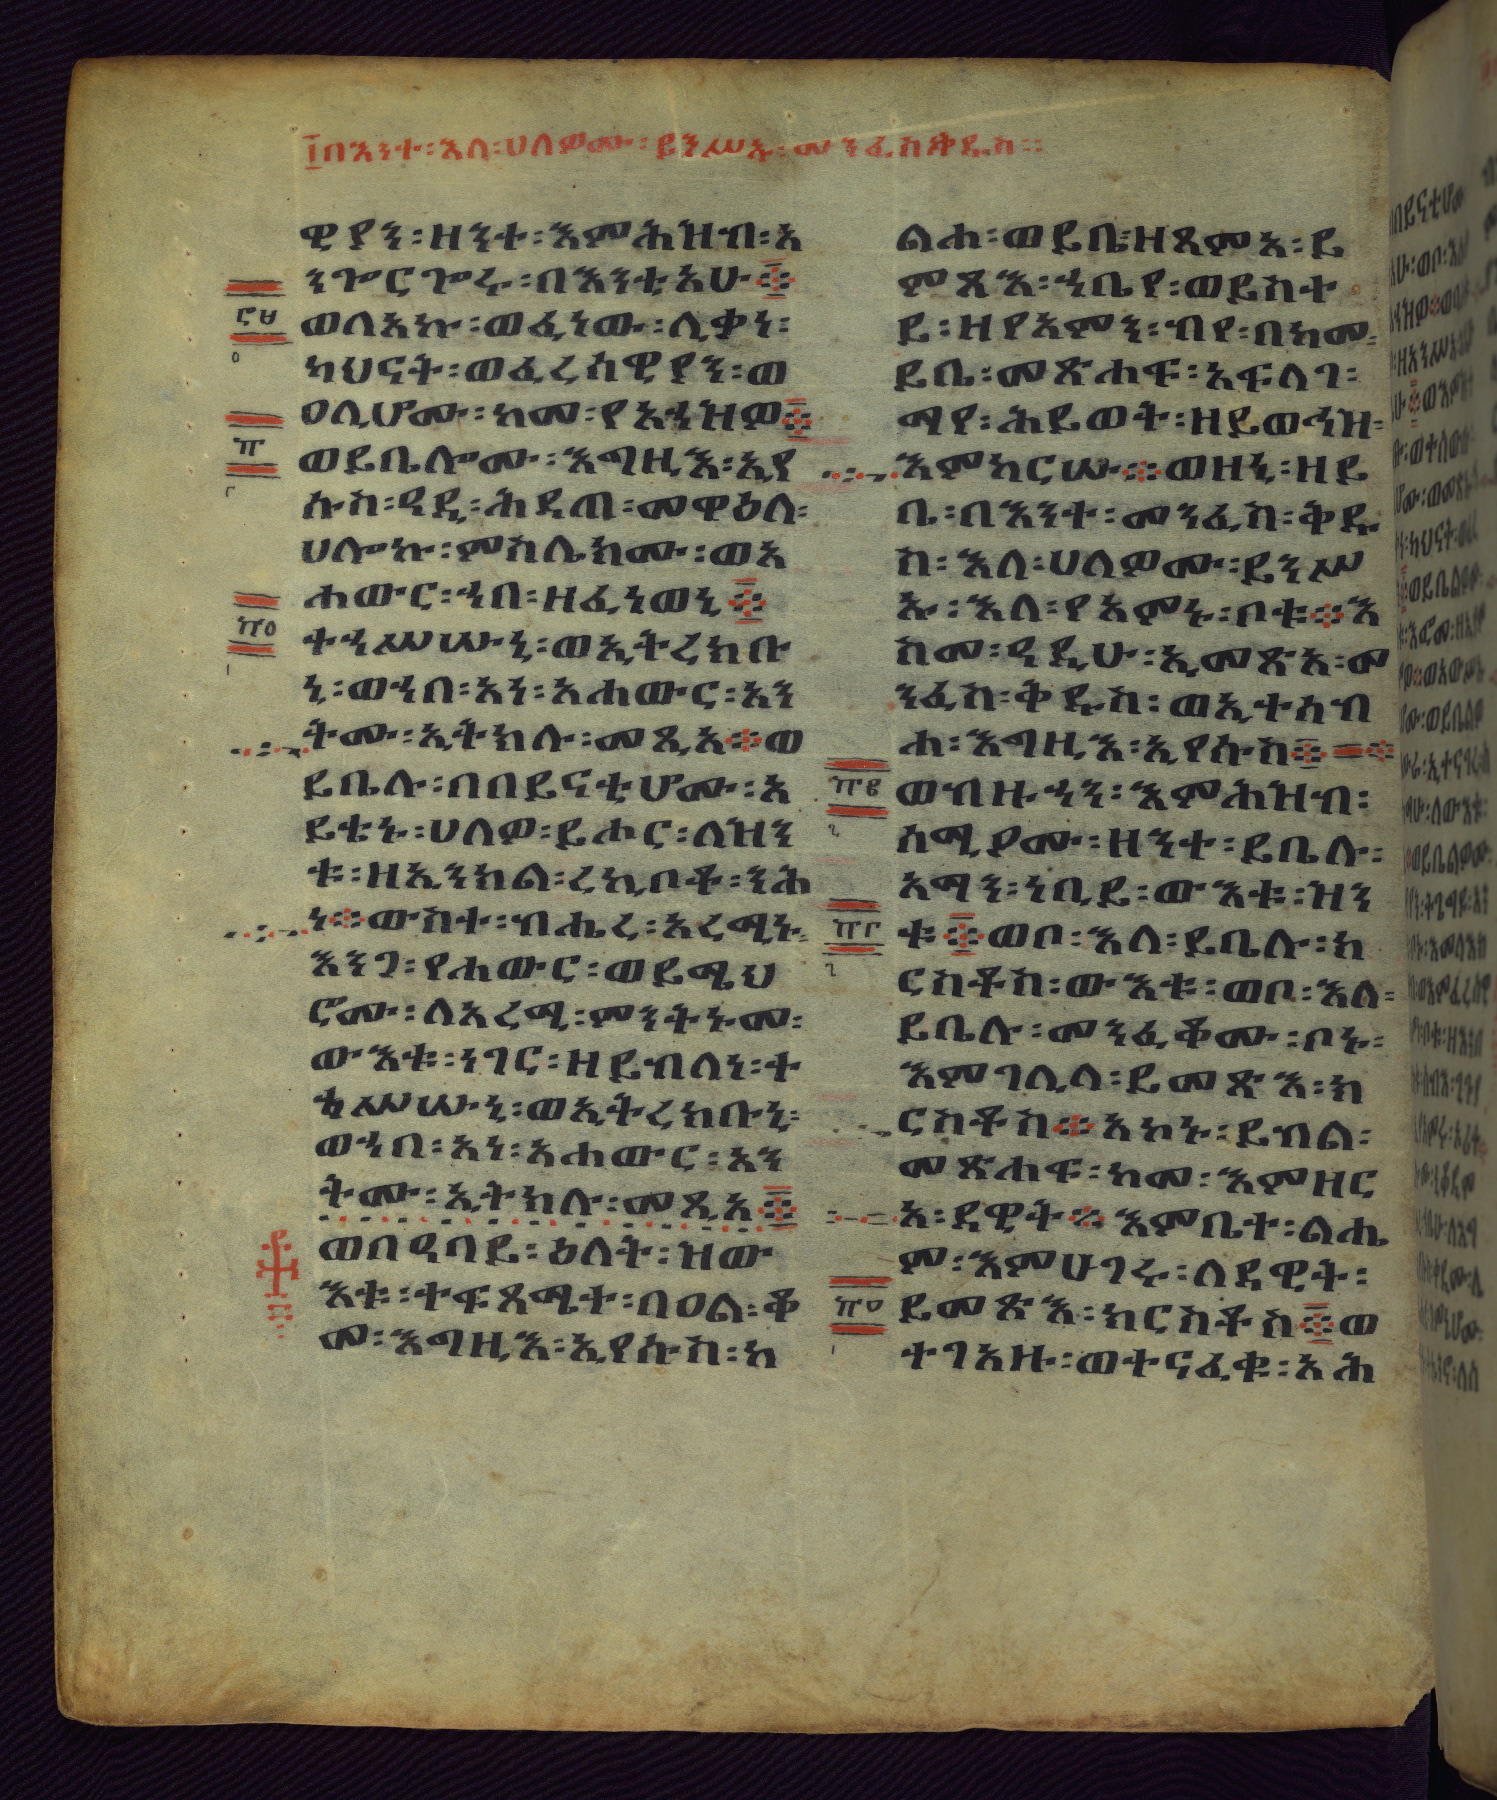 ፲በእንተ፡እለ፡ሀለዎሙ፡ይንሥኡ፡መንፈስቅዱስ።
ዊያን፡ዘንተ፡እምሕዝብ፡አ
ንጐርጐሩ፡በእንቲአሁ፨
ወለአኩ፡ወፈነው፡ሊቃነ፡
ካህናት፡ወፈረሳዊያን፡ወ
ዐሊሆሙ፡ከመ፡የአኀዝዎ፨
ወይቤሎሙ፡እግዚእ፡ኢየ
ሱስ፡ዓዲ፡ሕዳጠ፡መዋዕለ፡
ሀሎኩ፡ምስሌክሙ፡ወአ
ሐውር፡ኀበ፡ዘፈነወኒ፨
ተኀሥሡኒ፡ወኢትረክቡ
ኒ፡ወኀበ፡አነ፡አሐውር፡አን
ትሙ፡ኢትክሉ፡መጺአ፨ወ
ይቤሉ፡በበይናቲሆሙ፡አ
ይቴኑ፡ሀለዎ፡ይሖር፡ለዝን
ቱ፡ዘኢንክል፡ረኪቦቶ፡ንሕ
ነ፨ውስተ፡ብሔረ፡አረሚኑ፡
እንጋ፡የሐውር፡ወይሜህ
ሮሙ፡ለአረሚ፡ምንትኑመ፡
ውእቱ፡ነገር፡ዘይብለነ፡ተ
ኃሥሡኒ፡ወኢትረክቡኒ፡
ወኀበ፡አነ፡አሐውር፡አን
ትሙ፡ኢትክሉ፡መጺአ፨
ወበዓባይ፡ዕለት፡ዝው
እቱ፡ተፍጻሜተ፡በዐል፡ቆ
መ፡እግዚእ፡ኢየሱስ፡ከ
ልሐ፡ወይቤ፡ዘጸምአ፡ይ
ምጻእ፡ኀቤየ፡ወይስተ
ይ፡ዘየአምን፡ብየ፡በከመ፡
ይቤ፡መጽሐፍ፡አፍላገ፡
ማየ፡ሕይወት፡ዘይውኅዝ፡
እምከርሡ፨ወዘኒ፡ዘይ
ቤ፡በእንተ፡መንፈስ፡ቅዱ
ስ፡እለ፡ሀለዎሙ፡ይንሥ
ኡ፡እለ፡የአምኑ፡ቦቱ፨እ
ስመ፡ዓዲሁ፡ኢመጽአ፡መ
ንፈስ፡ቅዱስ፡ወኢተሰብ
ሐ፡እግዚእ፡ኢየሱስ፨
ወብዙኃን፡እምሕዝብ፡
ሰሚዖሙ፡ዘንተ፡ይቤሉ፡
አማን፡ነቢይ፡ውእቱ፡ዝን
ቱ፨ወቦ፡እለ፡ይቤሉ፡ክ
ርስቶስ፡ውእቱ፡ወቦ፡እለ፡
ይቤሉ፡መንፈቆሙ፡ቦኑ፡
እምገሊላ፡ይመጽእ፡ክ
ርስቶስ፨አኮኑ፡ይብል፡
መጽሐፍ፡ከመ፡እምዘር
አ፡ዳዊት፨እምቤተ፡ልሔ
ም፡እምሀገሩ፡ለዳዊት፡
ይመጽእ፡ክርስቶስ፨ወ
ተጋአዙ፡ወተናፈቁ፡አሕ